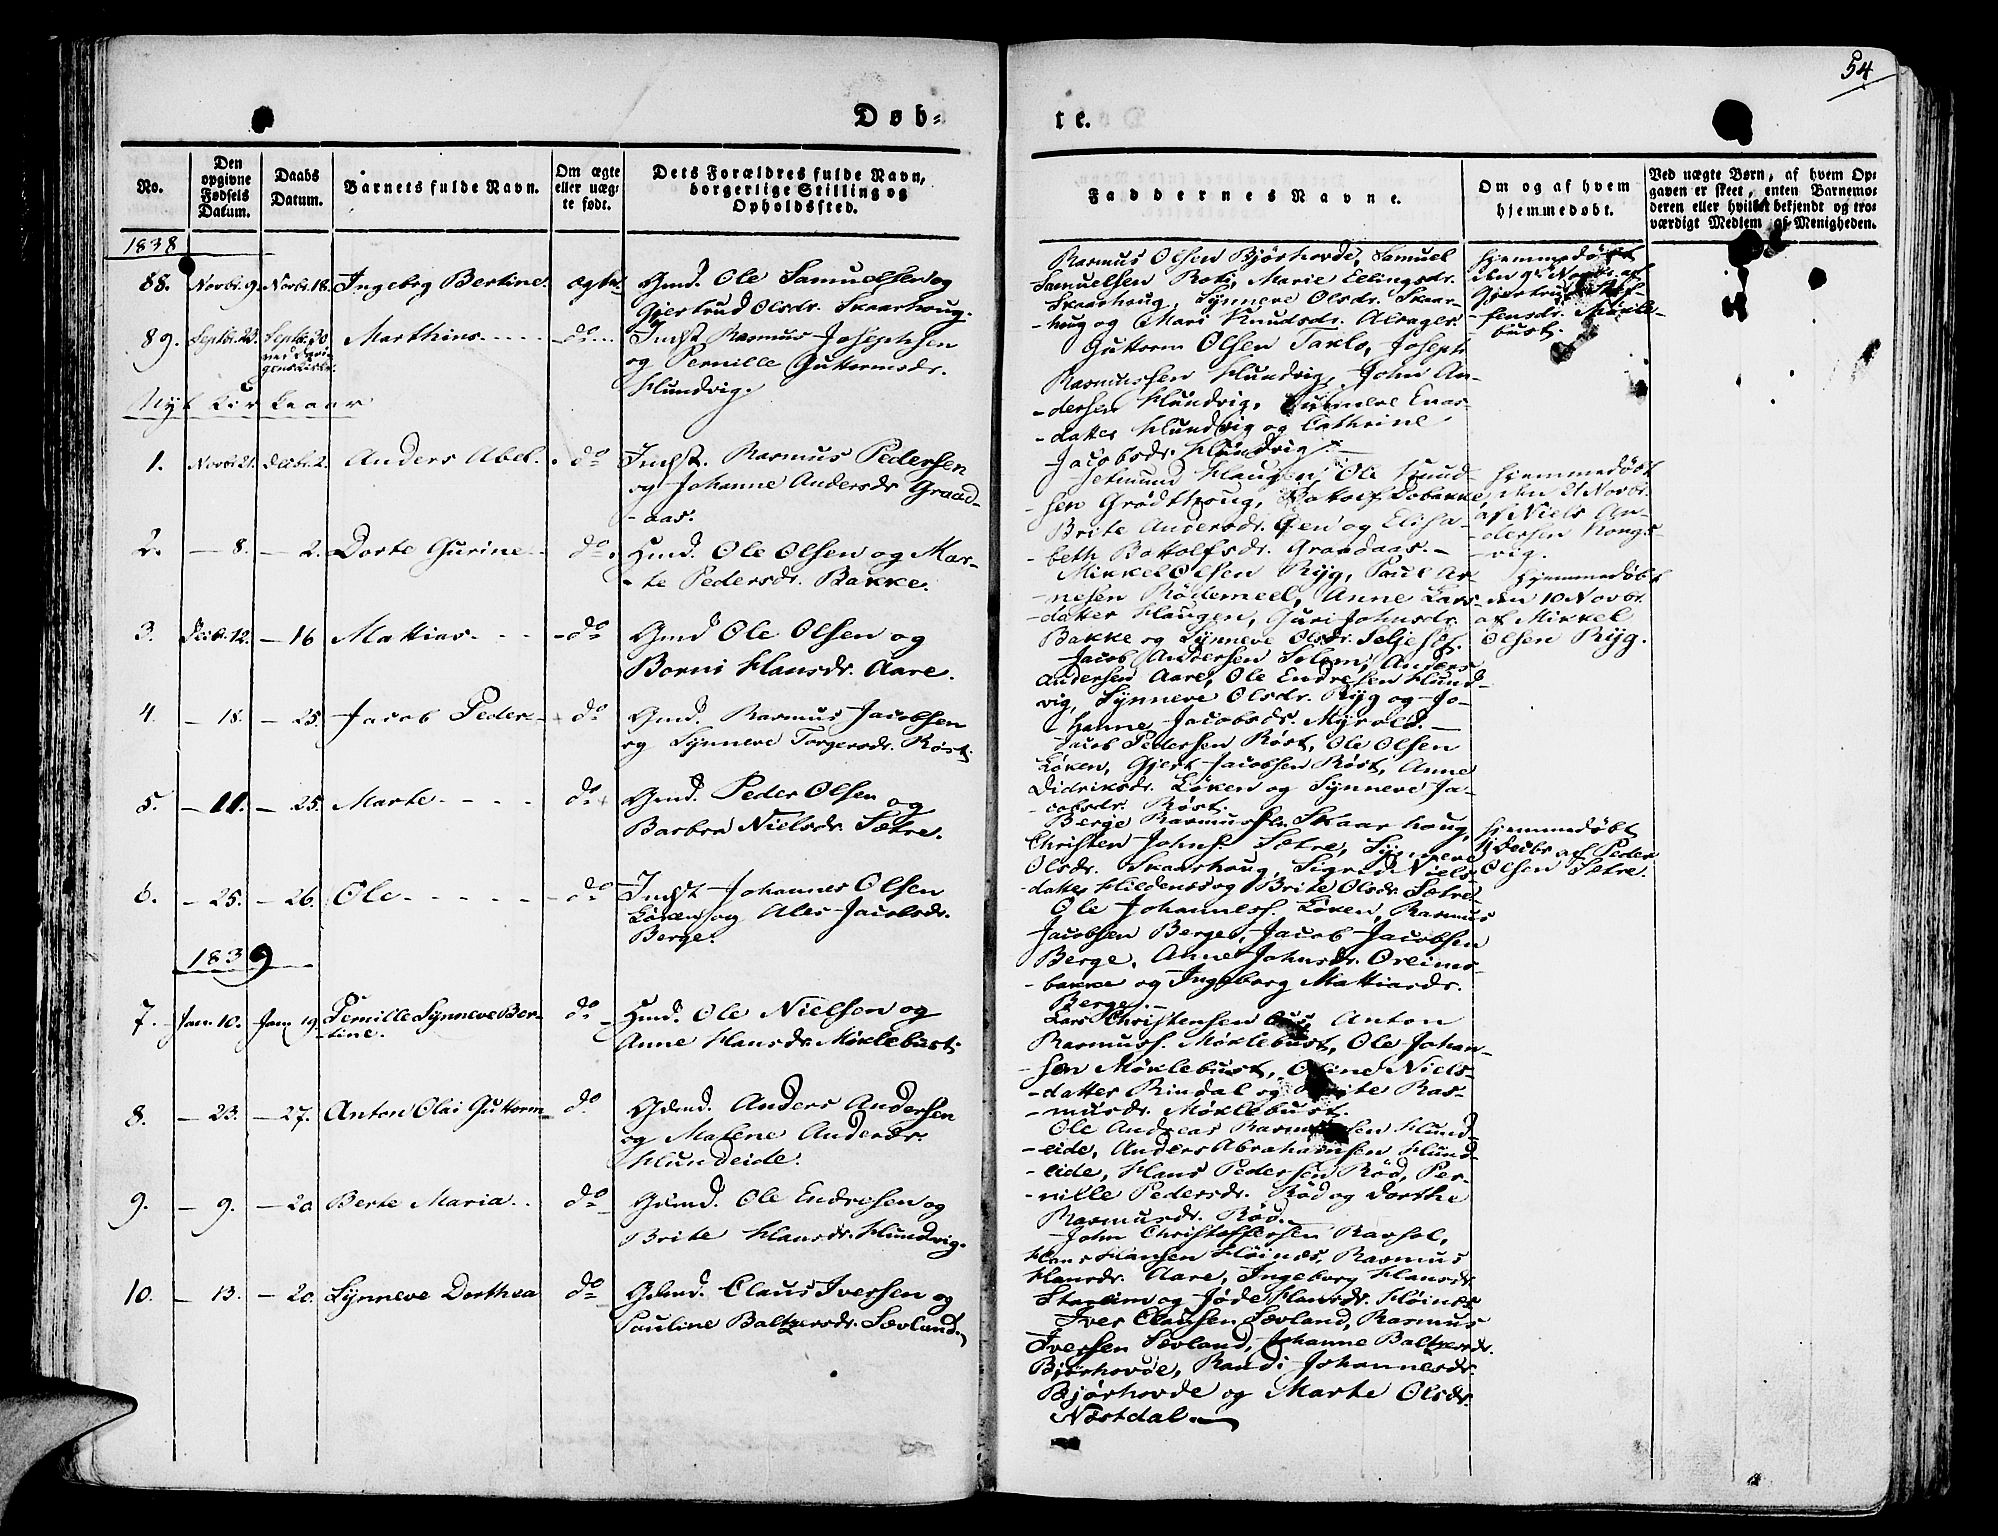 54
Døb-
te.
No.
Den opgivne Fødsels Datum.
Daabs Datum.
Barnets fulde Navn.
Om ægte eller uægte født.
Dets Forældres fulde Navn, borgerlige Stilling og Opholdssted.
Faddernes Navne.
Om og af hvem hjemmedøbt.
Ved uægte Børn, af hvem Opgaven er skeet, enten Barnemoderen eller hvilket bekjendt og troværdigt Medlem af Menigheden.
1838
88. Novbr. 9. Novbr. 18. Ingeborg Bertine. ægte.
Gmd. Ole Samuelsen og
Gjertrud Olsdr. Skaarhoug.
Rasmus Olsen Bjørhovde, Samuel
Samuelsen Roti, Marie Ellingsdr.
Skaarhoug, Synneve Olsdr. Skaar-
-houg og Mari Knudsdr.
Hjemmedøbt
den 9de Novbr. af
89. Septbr. 23. Septbr. 30 Marthins - - - do
Indst Rasmus Josephsen
og Pernille Guttormsdr.
Hundvig.
Guttorm Olsen Taklo, Joseph
Rasmussen Hundvig, John An-
-dersen Hundvig, Synneve Enos-
-datter Hundvig og Cathrine
Jacobsdr. Hundvig.
Nyt Kirkeaar
1. Novbr. 21. Decbr. 2. Anders Abel. do
Indst. Rasmus Pedersen
og Johanne Andersdr. Graad-
-aas.
Jetmund Haugen, Ole Knud-
-sen Grødthoug,
Brite Andersdr. Øen og Elisa-
-beth Bottolfsdr. Graadaas.
Hjemmedøbt
den 21 Novbr.
af Niels An-
-dersen Kongs-
-vig.
2. - 8. - 2. Dorte Gurine. do.
Hmd. Ole Olsen og Mar-
-te Pedersdr. Bakke.
Mikkel Olsen Ryg, Paul Ar-
-nesen Rødemeel, Anne Lars-
-datter Haugen, Guri Johnsdr.
Bakke og Synneve Olsdr. Seljeset.
Hjemmedøbt
den 10 Novbr.
af Mikkel
Olsen Ryg.
3. Decbr. 12. - 16 Mattias - - - do
Gmd Ole Olsen og
Borni Hansdr. Aare.
Jacob Andersen Solem, Anders
Andersen Aare, Ole Endresen Hund-
vig, Synneve Olsdr. Ryg og Jo-
hanne Jacobsdr. Myrold.
4. - 18. - 25. Jacob Peder - do
Gmd. Rasmus Jacobsen
og Synneve Torgersdr. Røst.
Jacob Pedersen Røst, Ole Olsen
Løken, Gjert Jacobsen Røst, Anne
Didriksdr. Løken og Synneve Ja-
-cobsdr. Røst.
5. - 11. - 25. Marte - - - do
Gmd. Peder Olsen og
Barbra Nielsdr. Sætre.
Berge Rasmussen Skaarhoug,
Christen Johns. Sætre, Synneve
Olsdr. Skaarhoug, Sigrid Niels-
-datter Hildenes og Brite Olsdr. Sætre.
Hjemmedøbt
Decbr af Peder
Olsen Sætre.
6. - 25. - 26. Ole - - - - - do
Indst Johannes Olsen
Løken og Ales Jacobsdr.
Berge.
Ole Johanness. Løken, Rasmus
Jacobsen Berge, Jacob Jacobsen
Berge, Anne Johnsdr. Oreims-
-bakke og Ingeborg Mattiasdr.
Berge.
1839
7. Jan. 10. Jan. 19. Pernille Synneve Ber-
-tine. do
Hmd. Ole Nielsen og
Anne Hansdr. Møklebust.
Lars Christensen Aus, Anton
Rasmuss. Møklebust, Ole Johan-
-sen Møklebust, Oline Niels-
-datter Rindal og Brite Ras-
-musdr. Møklebust.
8. - 23. - 27. Anton Olai Guttorm do.
Gdmd. Anders Andersen
og Malene Andersdr.
Hundeide.
Ole Andreas Rasmussen Hund-
-eide, Anders Abrahamsen Hund-
-eide, Hans Pedersen Rød, Per-
-nille Pedersdr. Rød og Dorthe
Rasmusdr. Rød.
9. - 9. - 20 Berte Maria. do
Gdmd. Ole Endresen og
Brite Hansdr. Hundvig.
John Christoffersen Raksol,
Hans Hansen Høines, Rasmus
Hansdr. Aare, Ingeborg Hansdr.
Stareim og Jøde Hansdr. Høines
10. - 13. - 20. Synneve Dorthea do
Gdmd. Claus Iversen og
Pauline Baltzersdr. Sævland.
Iver Clausen Sævland, Rasmus
Iversen Sevland, Johanne Baltzersdr.
Bjørhovde, Randi Johannesdr.
Bjørhovde og Marte Olsdr.
Nøstdal.